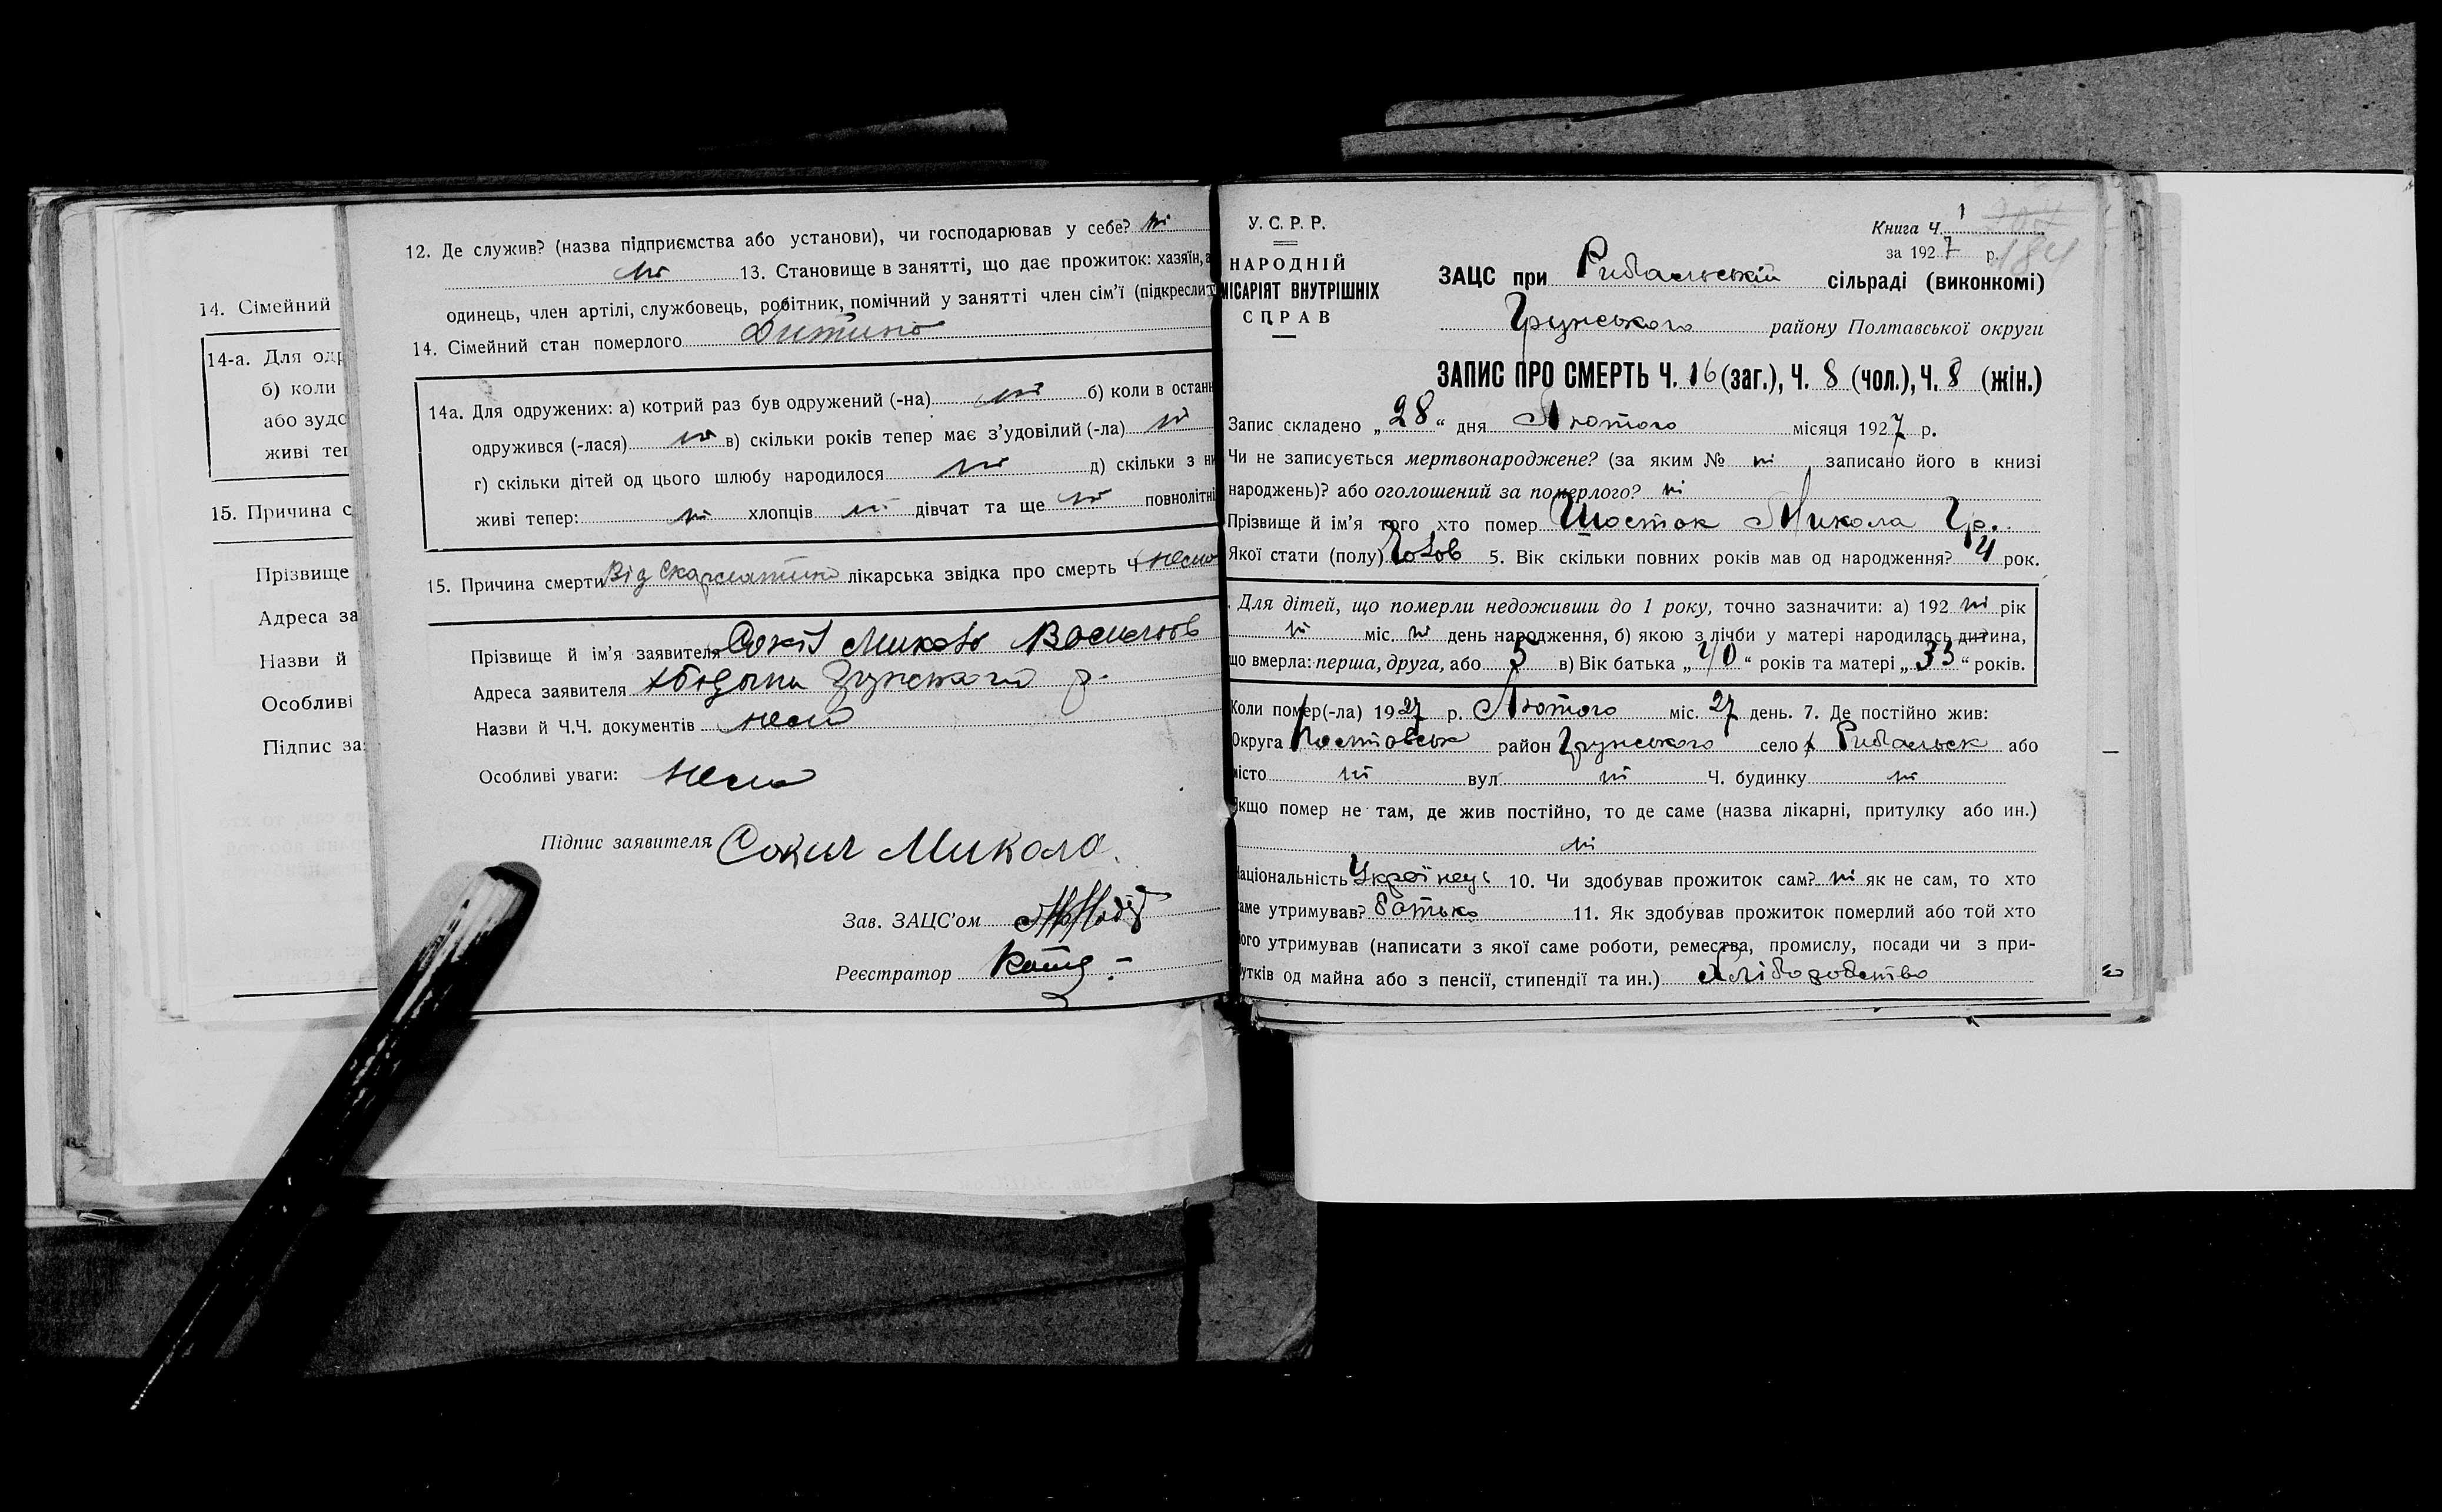 14. Сімейний
14-а. Для одр
б) коли
або зудо
живі тег
15. Причина с
Прізвище
Адреса за
Назви й
Особливі
Підпис за
12. Де служив? (назва підприємства або установи), чи господарював у себе? ні
ні 13. Становище в занятті, що дає прожиток: хазяїн,
одинець, член артілі, службовець, робітник, помічний у занятті член сім'ї (підкреслит
14. Сімейний стан померлого Дитина
14а. Для одружених: а) котрий раз був одружений (-на) ні б) коли в остан
одружився (-лася) ні в) скільки років тепер має з'удовілий (-ла) ні
г) скільки дітей од цього шлюбу народилося ні д) скільки з ни
живі тепер: ні хлопців ні дівчат та ще ні повнолітні
15. Причина смерти Від Скарлатини лікарська звідка про смерть Ч. нема
Прізвище й ім'я заявителя Микола
Адреса заявителя р.
Назви й Ч.Ч. документів нема
Особливі уваги: нема
Підпис заявителя Микола
Зав. ЗАЦС'ом
Реєстратор
У.С.Р.Р.
НАРОДНІЙ
МІСАРІЯТ ВНУТРІШНІХ
СПРАВ
Книга Ч. 1
за 1927 р.
184
ЗАЦС при Рибальській сільраді (виконкомі)
Грунського району Полтавської округи
ЗАПИС ПРО СМЕРТЬ Ч. 16 (заг.), Ч. 8 (чол.), Ч. 8 (жін.)
Запис складено „28“ дня Лютого місяця 1927 р.
Чи не записується мертвонароджене? (за яким № ні записано його в книзі
народжень)? або оголошений за померлого? ні
Прізвище й ім'я того хто помер Шостак Микола Гр.
Якої стати (полу) 5. Вік скільки повних років мав од народження? 4 рок.
. Для дітей, що померли недоживши до 1 року, точно зазначити: а) 192 ні рік
ні міс. ні день народження, б) якою з лічби у матері народилась дитина,
що вмерла: перша, друга, або 5 в) Вік батька „40“ років та матері „33“ років.
Коли помер(-ла) 1927 р. Лютого міс. 27 день. 7. Де постійно жив:
Округа район Грунського село Рибальськ або
місто ні вул. ні Ч. будинку ні
Якщо помер не там, де жив постійно, то де саме (назва лікарні, притулку або ин.)
ні
Національність Українец 10. Чи здобував прожиток сам? ні як не сам, то хто
саме утримував? батько 11. Як здобував прожиток померлий або той хто
його утримував (написати з якої саме роботи, ремества, промислу, посади чи з при-
бутків од майна або з пенсії, стипендії та ин.) хліборобство